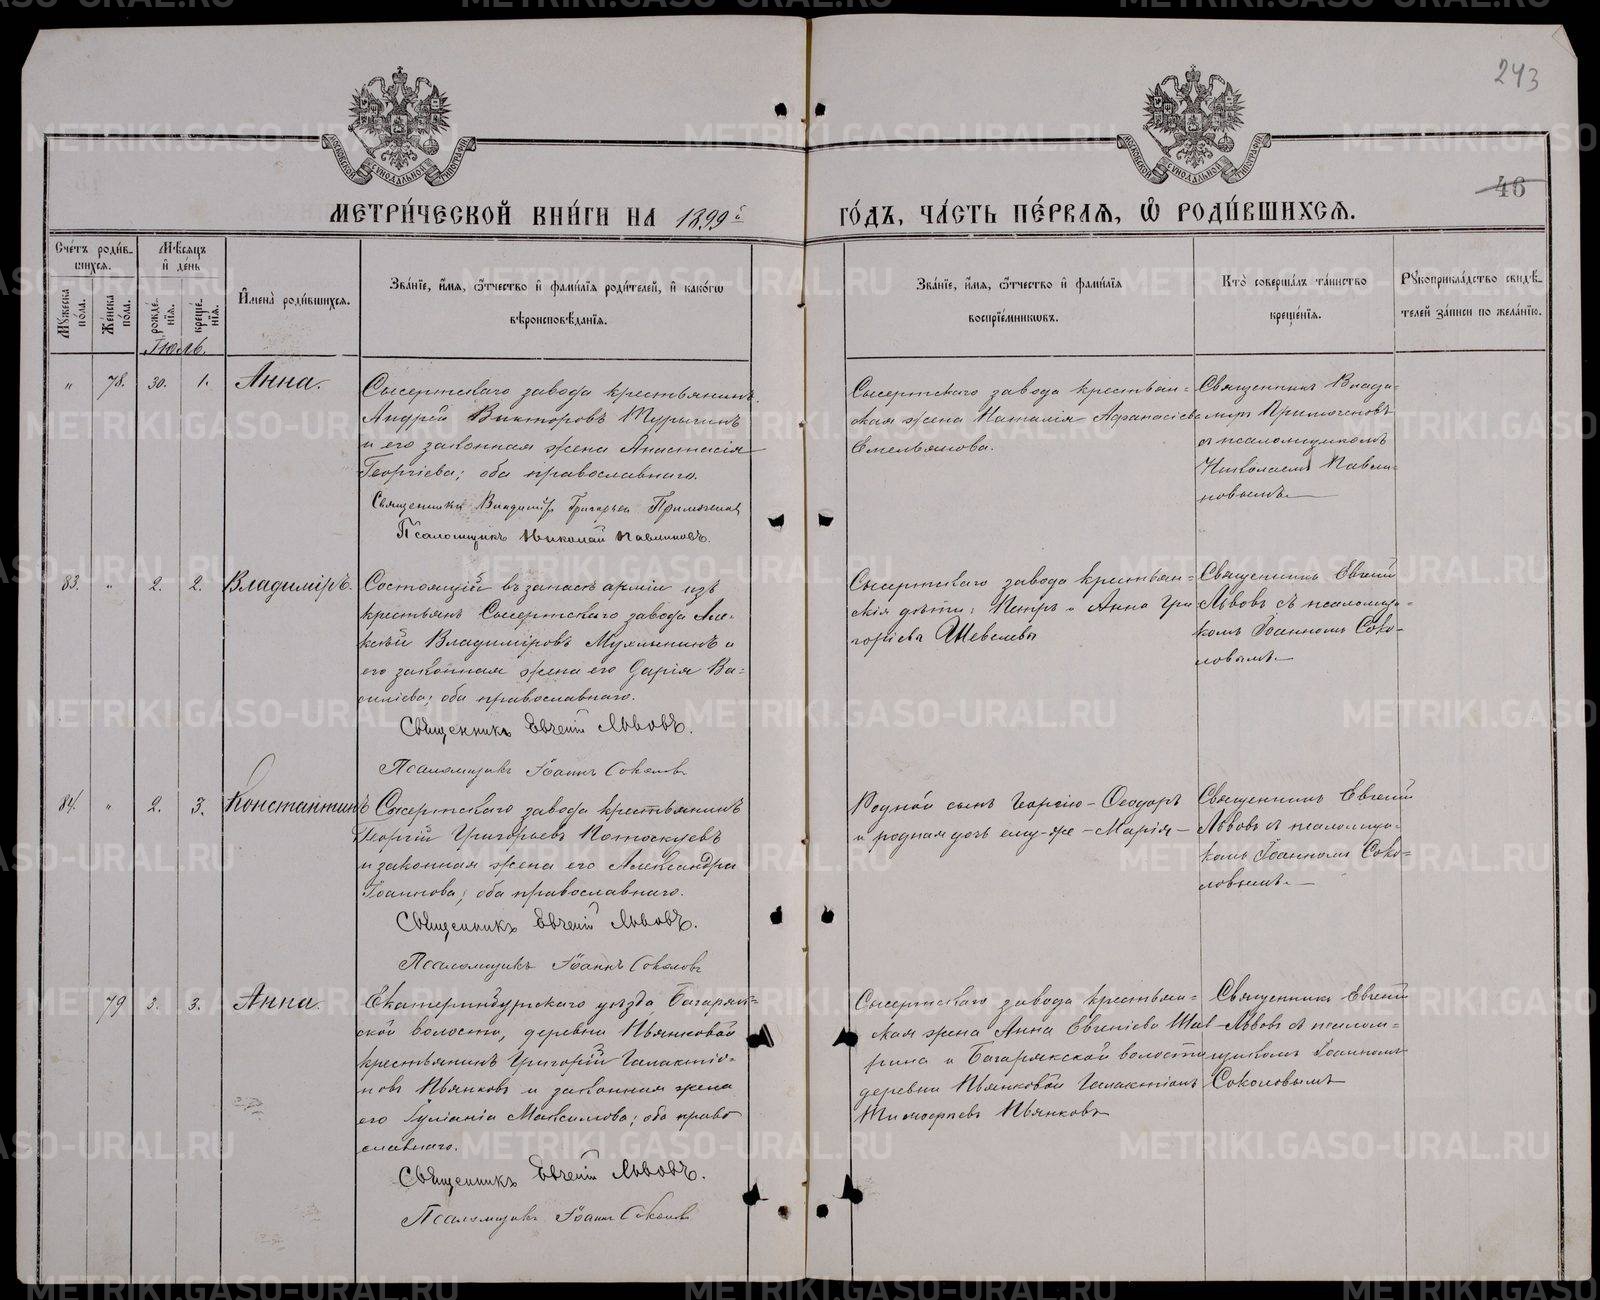 243
46
МЕТРИ́ЧЕСКОЙ КНИ́ГИ НА 1899й
ГО́ДЪ, ЧА́СТЬ ПЕ́РВАѦ, Ѡ҆ РОДИ́ВШИХСѦ.
Сче́тъ роди́в-
шихся.
Мѣсяцъ
и҆ де́нь
Мꙋжеска по́ла.
Же́нска по́ла.
рожде́нїѧ.
креще́нїѧ.
И҆мена̀ роди́вшихся.
Зва́нїе, и҆́мѧ, ѻ҆́тчество и҆ фами́лїѧ роди́телей, и҆ како́гѡ
вѣроисповѣ́данїѧ.
Зва́нїе, и҆́мѧ, ѻ҆́тчество и҆ фами́лїѧ
воспрїе́мниковъ.
Кто̀ соверша́лъ та́инство
креще́нїѧ.
Рꙋкоприкла́дство свидѣ́-
телей за́писи по жела́нїю.
Іюль.
" 78. 30. 1. Анна.
Сысертскаго завода крестьянинъ
Андрей Викторовъ Турыгинъ
и его законная жена Анастасія
Георгіева; оба православнаго.
Священникъ Владиміръ Григорьев
Псаломщикъ Николай Павлиновъ.
Сысертскаго завода крестьян-
ская жена Наталія Афанасіева
Емельянова.
Священникъ Влади-
миръ
съ псаломщикомъ
Николаемъ Павли-
новымъ.
83. " 2. 2. Владиміръ.
Состоящій въ запасѣ арміи изъ
крестьянъ Сысертскаго завода Але-
ксѣй Владиміровъ Мухлынинъ и
его законная жена его Дарія Ва-
силіева; оба православнаго.
Священникъ Евгеній Львовъ.
Псаломщикъ Іоаннъ Соколовъ
Сысертскаго завода крестьян-
скія дѣти: Петръ и Анна Гри
горіевы Шевелевы
Священникъ Евгеній
Львовъ съ псаломщи-
комъ Іоанномъ Соко-
ловымъ.
84. " 2. 3. Константинъ
Сысертскаго завода крестьянинъ
Георгій Григорьевъ Потоскуевъ
и законная жена его Александра
Іоаннова; оба православнаго.
Священникъ Евгеній Львовъ.
Псаломщикъ Іоаннъ Соколовъ
Родной сынъ Георгію - Ѳеодоръ
и родная дочь ему-же - Марія -
Священникъ Евгеній
Львовъ съ псаломщи-
комъ Іоанномъ Соко-
ловымъ.
79 3. 3. Анна.
Екатеринбургскаго уѣзда Багаряк-
ской волости, деревни Пьянковой
крестьянинъ Григорій Галактіо-
новъ Пьянковъ и законная жена
его Іуліанія Максимова; оба право
славнаго.
Священникъ Евгеній Львовъ.
Псаломщикъ Іоаннъ Соколовъ
Сысертскаго завода крестьян-
ская жена Анна Евгеніева
и Багарякской волости
деревни Пьянковой Галактіонъ
Тимофеевъ Пьянковъ
Священникъ Евгеній
Львовъ съ псалом-
щикомъ Іоанномъ
Соколовымъ
METRIKI.GASO-URAL.RU